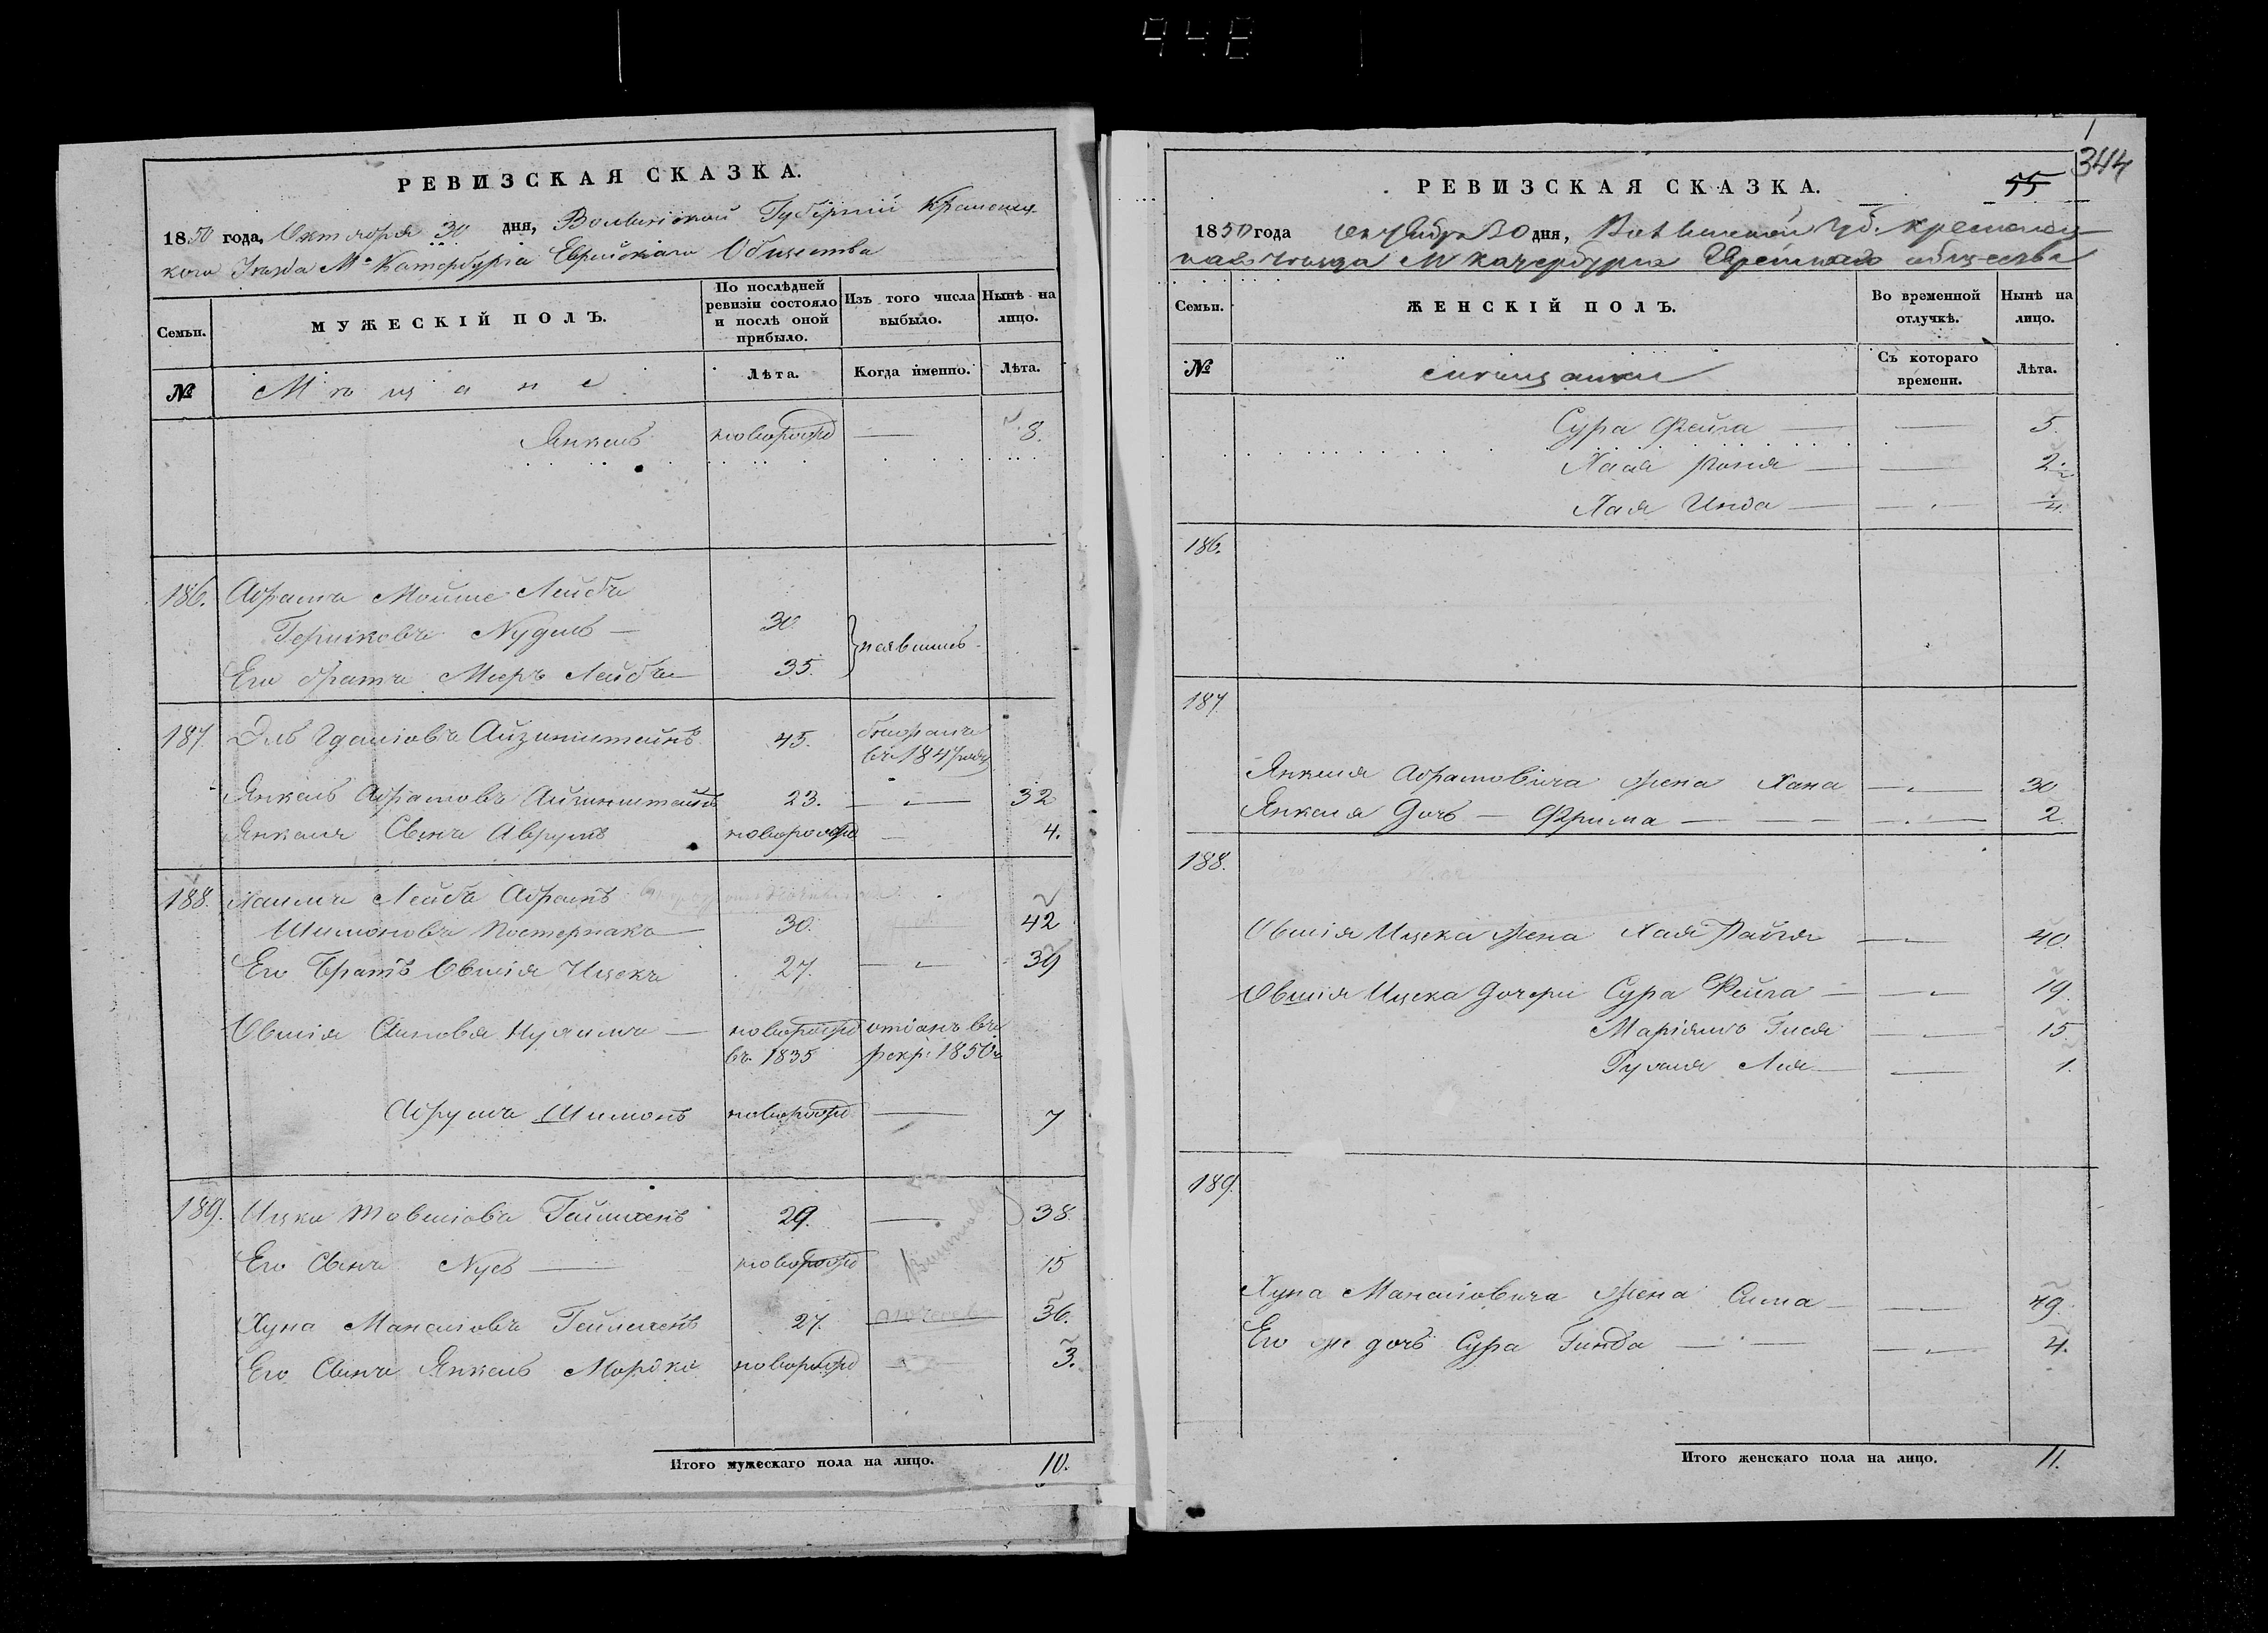 РЕВИЗСКАЯ СКАЗКА.
1850 года, Октября 30 дня, Волынской Губернии Кременец-
кого Уезда М. Катербурга Еврейского Общества
Семьи.
МУЖЕСКІЙ ПОЛЪ.
По послѣдней ревизіи состояло и послѣ оной прибыло.
Изъ того числа выбыло.
Нынѣ на лицо.
№
Мѣщане
Лѣта.
Когда именно.
Лѣта.
Янкель новорожд — 8.
186. Абрамъ Мойше Лейба
Гершковъ Нудель — 30
Его братъ Меръ Лейба 35.
187. Эль Айзинштейнъ 45. въ 1847 году
Янкель Абрамовъ Айзинштейнъ 23. — 32
Янкеля Сынъ Аврумъ новорожд — 4.
188. Хаимъ Лейба Абрамъ
Шимоновъ Постернакъ 30. 42
Его Братъ Овшія Ицекъ 27. — 39
Овшія Сыновья новорожд отданъ въ
въ 1835 рекр: 1850г
Абрумъ Шимонъ новорожд — 7
189. Ицко Товшіовъ 29. — 38.
Его Сынъ Нусь — новорожд 15
Хуна 27. 36.
Его Сынъ Янкель Мордко новорожд 3.
Итого мужескаго пола на лицо. 10.
344
55
РЕВИЗСКАЯ СКАЗКА.
1850 года октября 30 дня, Волынской Губ. Кременец-
каго уезда М Катербурга Еврейского общества
Семьи.
ЖЕНСКІЙ ПОЛЪ.
Во временной отлучкѣ.
Нынѣ на лицо.
№
Съ котораго времени.
Лѣта.
Сура Фейга — — 5.
Хая — — 2.
Хая — —
186.
187.
Янкеля Абрамовича жена Хана — 30
Янкеля дочь — Фрима — — 2.
188.
Овшія Ицека жена Хая — 40.
Овшія Ицека дочери Сура Фейга — — 19.
Маріямъ Гися — 15.
Лея — — 1.
189.
Хуна жена Сима — — 49.
Его же дочь Сура Гинда — — 4.
Итого женскаго пола на лицо. 11.